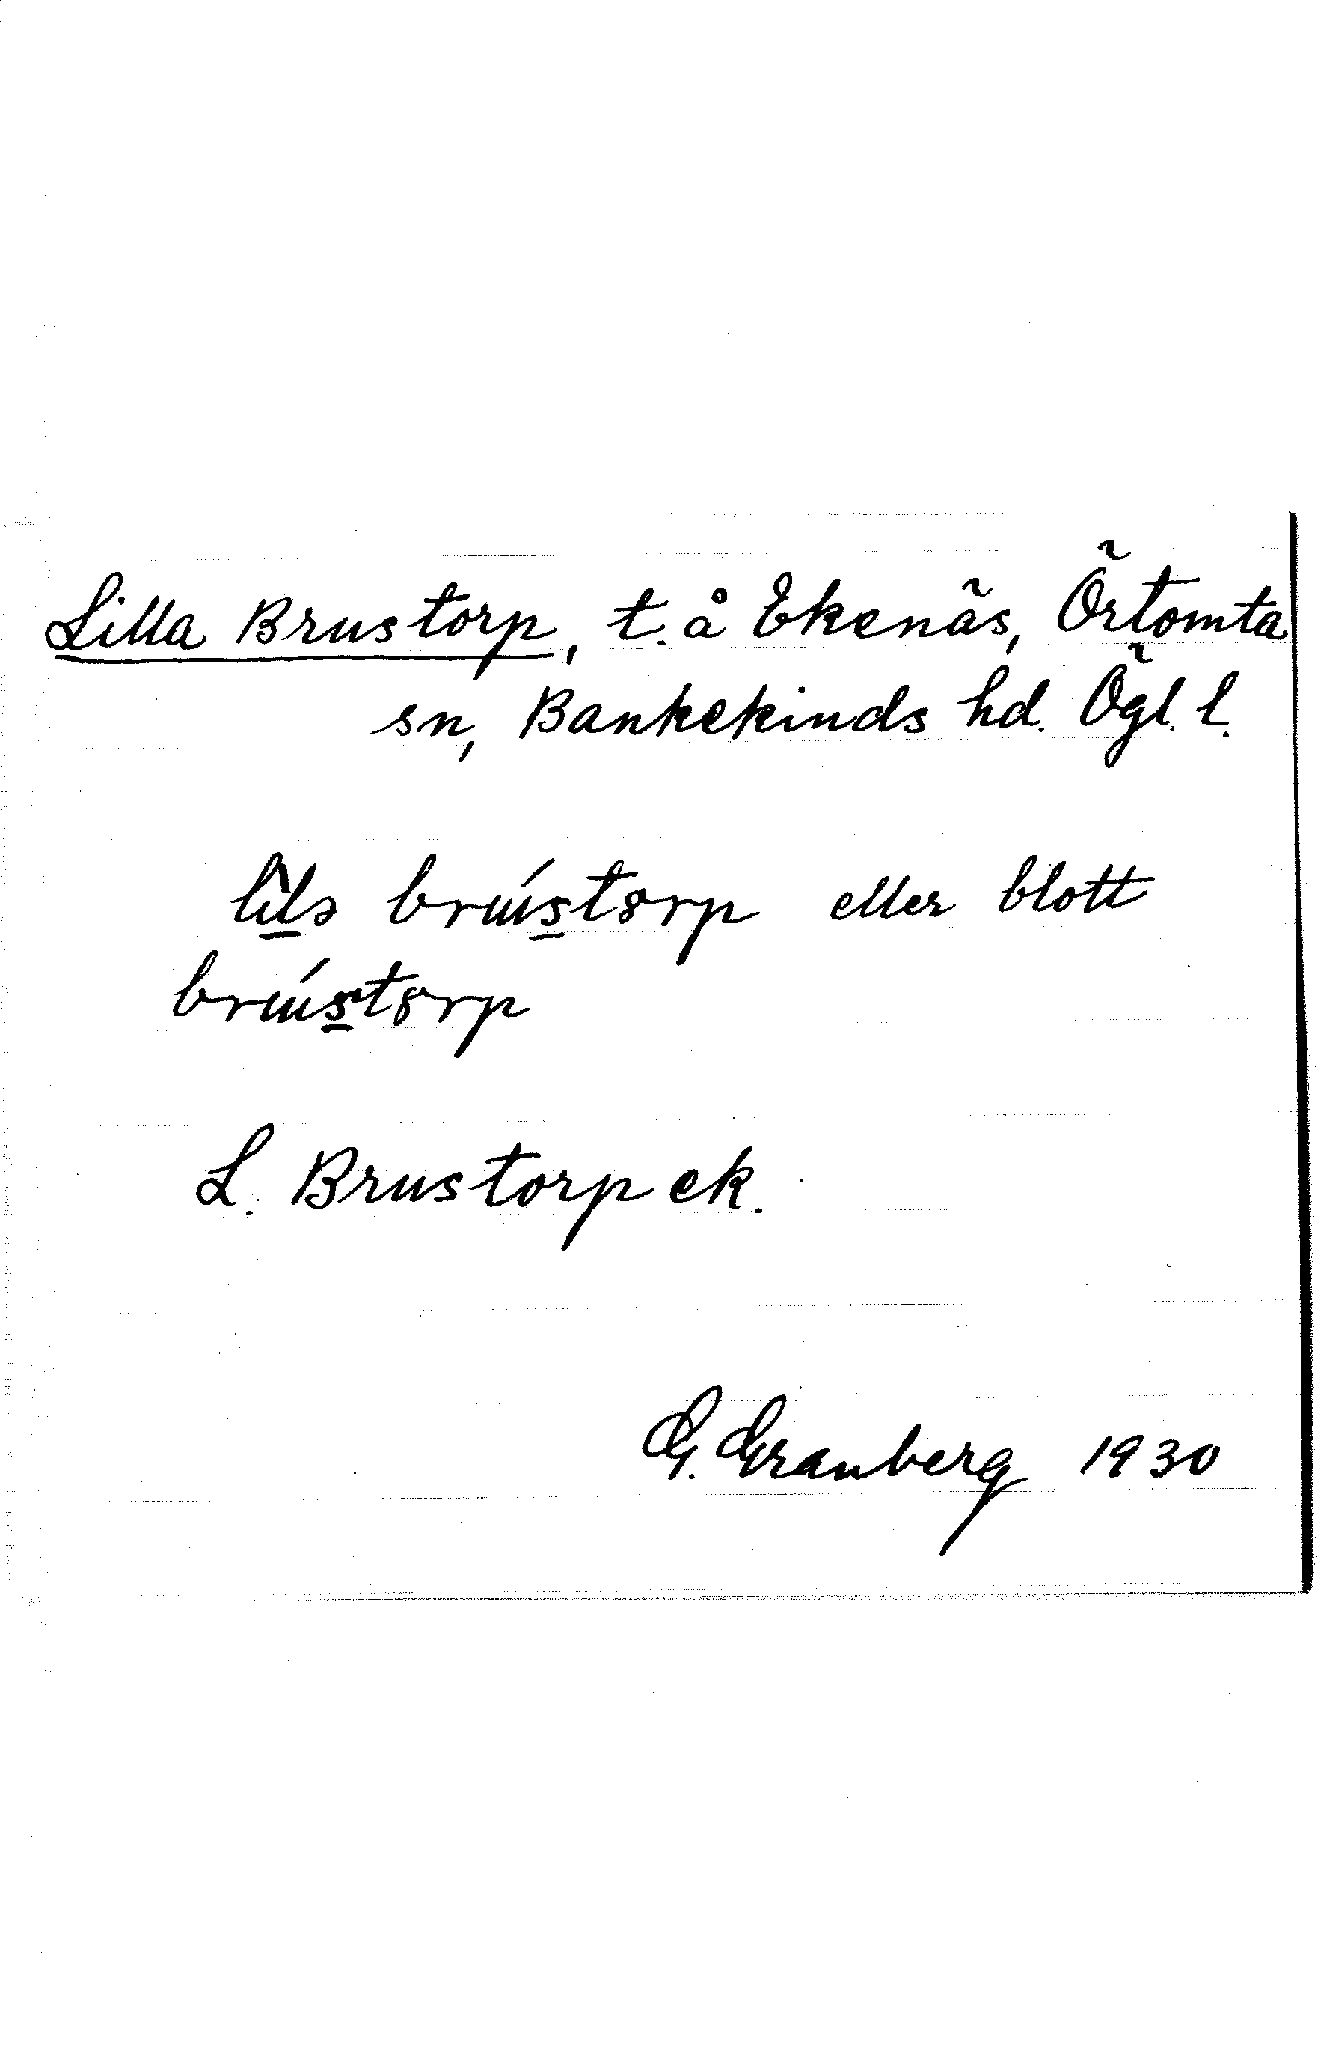 Lilla Brustorp, t. å Ekenäs, Örtomta
sn, Bankekinds hd. Ögl. l.
eller blott
L. Brustorp ek.
G. Granberg 1930